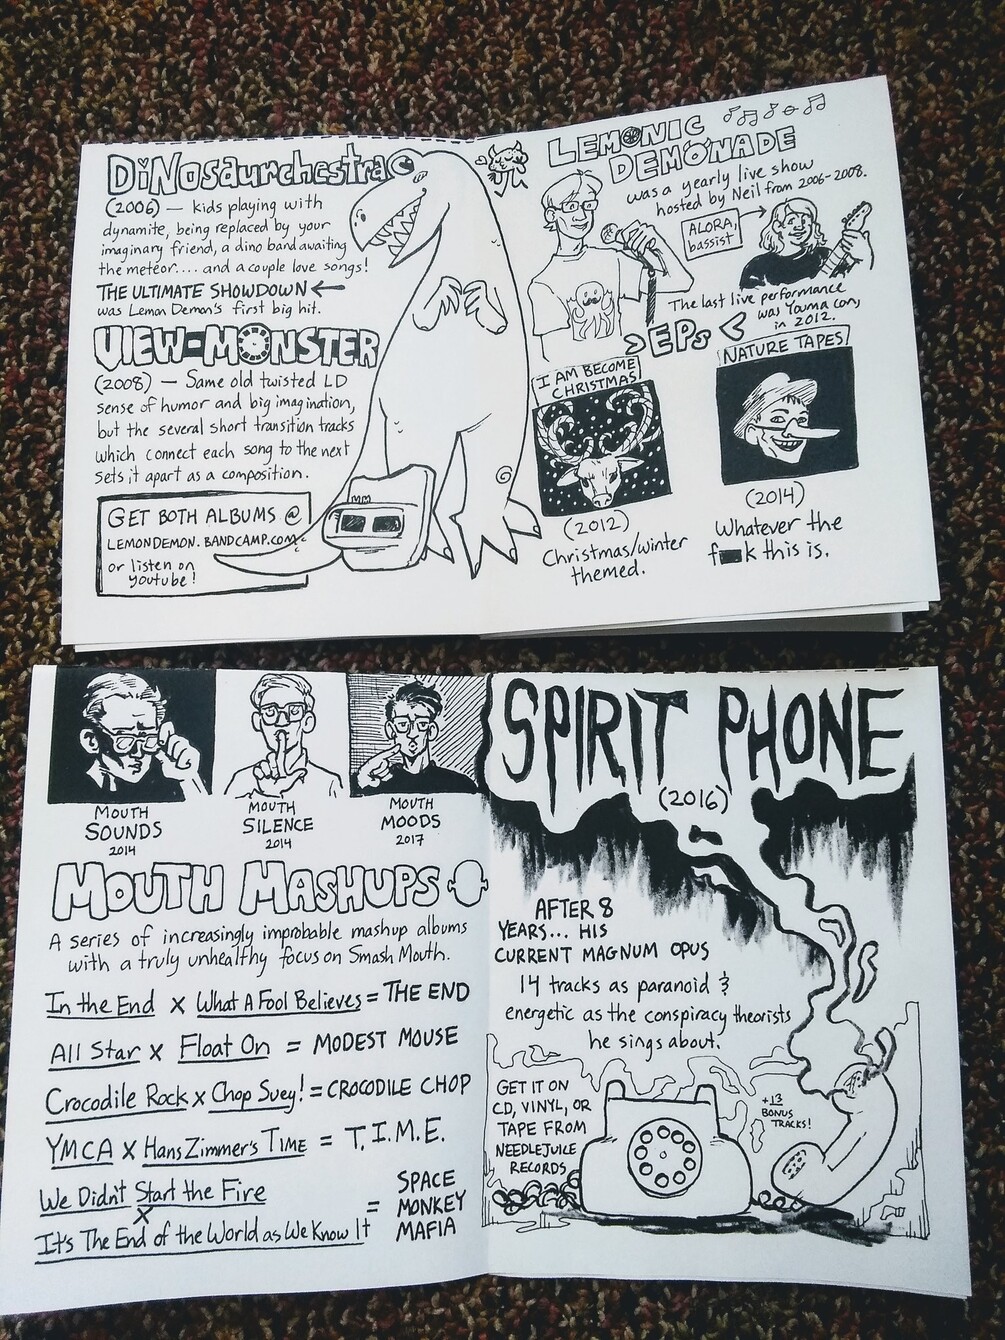 DiNosaurchestra
(2006) — kids playing with
dynamite, being replaced by your
imaginary friend, a dino band awaiting
the meteor.... and a couple love songs!
THE ULTIMATE SHOWDOWN ←
was Lemon Demon's first big hit.
VIEW-MONSTER
(2008) — Same old twisted LD
sense of humor and big imagination,
but the several short transition tracks
which connect each song to the next
sets it apart as a composition.
GET BOTH ALBUMS @
LEMONDEMON.BANDCAMP.COM
or listen on
youtube!
LEMONIC
DEMONADE
was a yearly live show
hosted by Neil from 2006-2008.
ALORA,
bassist
The last live performance
was Youma con,
in 2012.
> EPs <
I AM BECOME
CHRISTMAS
(2012)
Christmas/winter
themed.
NATURE TAPES
(2014)
Whatever the
f k this is.
MOUTH
SOUNDS
2014
MOUTH
SILENCE
2014
MOUTH
MOODS
2017
MOUTH MASHUPS
A series of increasingly improbable mashup albums
with a truly unhealthy focus on Smash Mouth.
In the End x What A Fool Believes = THE END
All Star x Float On = MODEST MOUSE
Crocodile Rock x Chop Suey! = CROCODILE CHOP
YMCA x Hans Zimmer's TIME = T.I.M.E.
We Didn't Start the Fire
x
It's The End of the World as We Know It
= SPACE
MONKEY
MAFIA
SPIRIT PHONE
(2016)
AFTER 8
YEARS... HIS
CURRENT MAGNUM OPUS
14 tracks as paranoid &
energetic as the conspiracy theorists
he sings about.
GET IT ON
CD, VINYL, OR
TAPE FROM
NEEDLEJUICE
RECORDS
+13
BONUS
TRACKS!